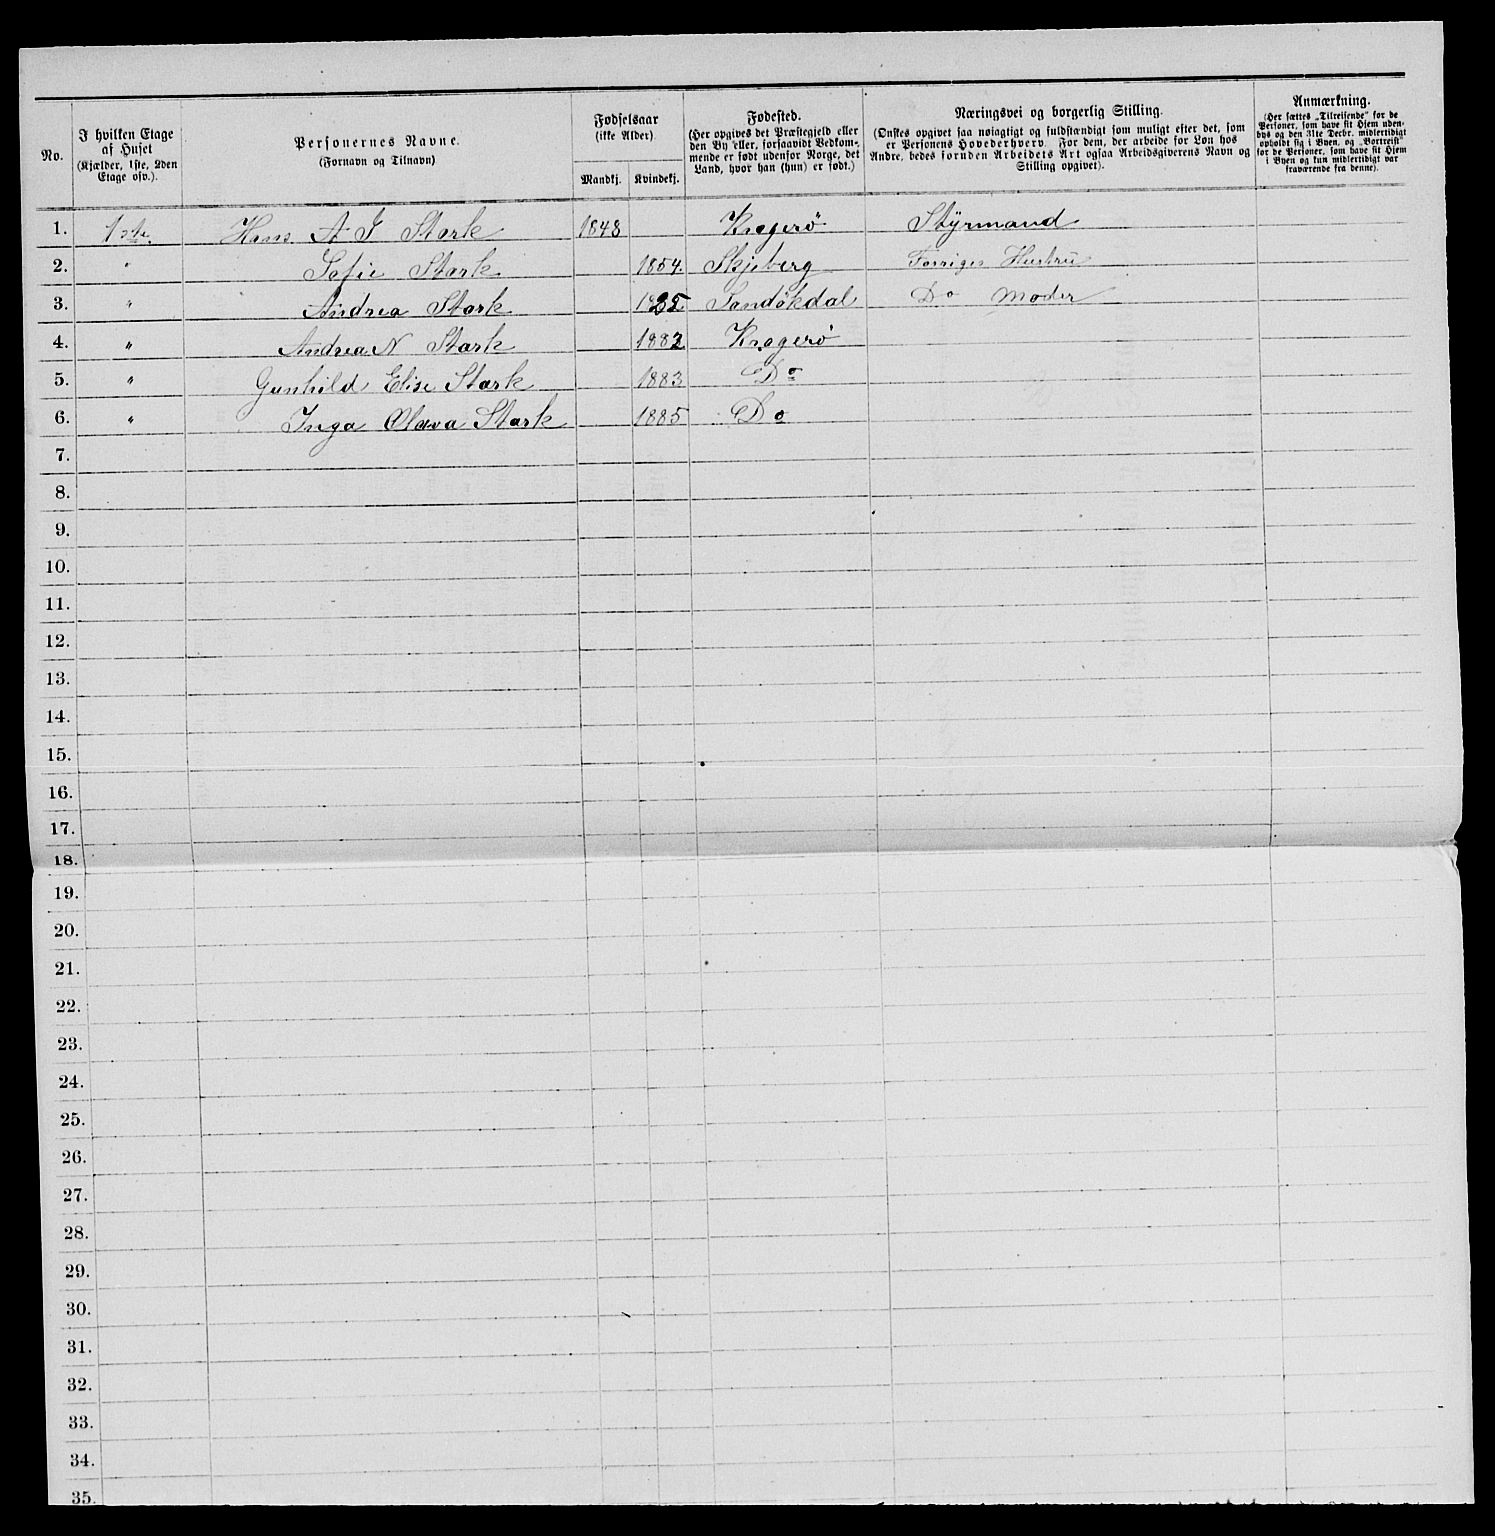 No.
I hvilken Etage af Huset
(Kjælder, 1ste, 2den Etage osv.).
Personernes Navne.
(Fornavn og Tilnavn)
Fødselsaar
(ikke Alder)
Mandkj.
Kvindekj.
Fødested.
(Her opgives det Præstegjeld eller
den By eller, forsaavidt Vedkom-
mende er født udenfor Norge, det
Land, hvor han (hun) er født.)
Næringsvei og borgerlig Stilling.
(Ønskes opgivet saa nøiagtigt og fuldstændigt som muligt efter det, som
er Personens Hovederhverv. For dem, der arbeide for Løn hos
Andre, bedes foruden Arbeidets Art ogsaa Arbeidsgiverens Navn og
Stilling opgivet).
Anmærkning.
(Her sættes „Tilreisende" for de
Personer, som have sit Hjem uden-
bys og den 31te Decbr. midlertidigt
opholdt sig i Byen, og „Bortreist"
for de Personer, som have sit Hjem
i Byen og kun midlertidigt var
fraværende fra denne).
1. 1ste. Hans A J Stark 1848 Kragerö Styrmand
2. " Sofie Stark 1854. Skjeberg Forriges Hustru
3. " Andrea Stark 1825 Sandökdal Do Moder
4. " Andrea N Stark 1882 Kragerö
5. " Gunhild Elise Stark 1883 Do
6. " Inga Olava Stark 1885 Do
7.
8.
9.
10.
11.
12.
13.
14.
15.
16.
17.
18.
19.
20.
21.
22.
23.
24.
25.
26.
27.
28.
29.
30.
31.
32.
33.
34.
35.